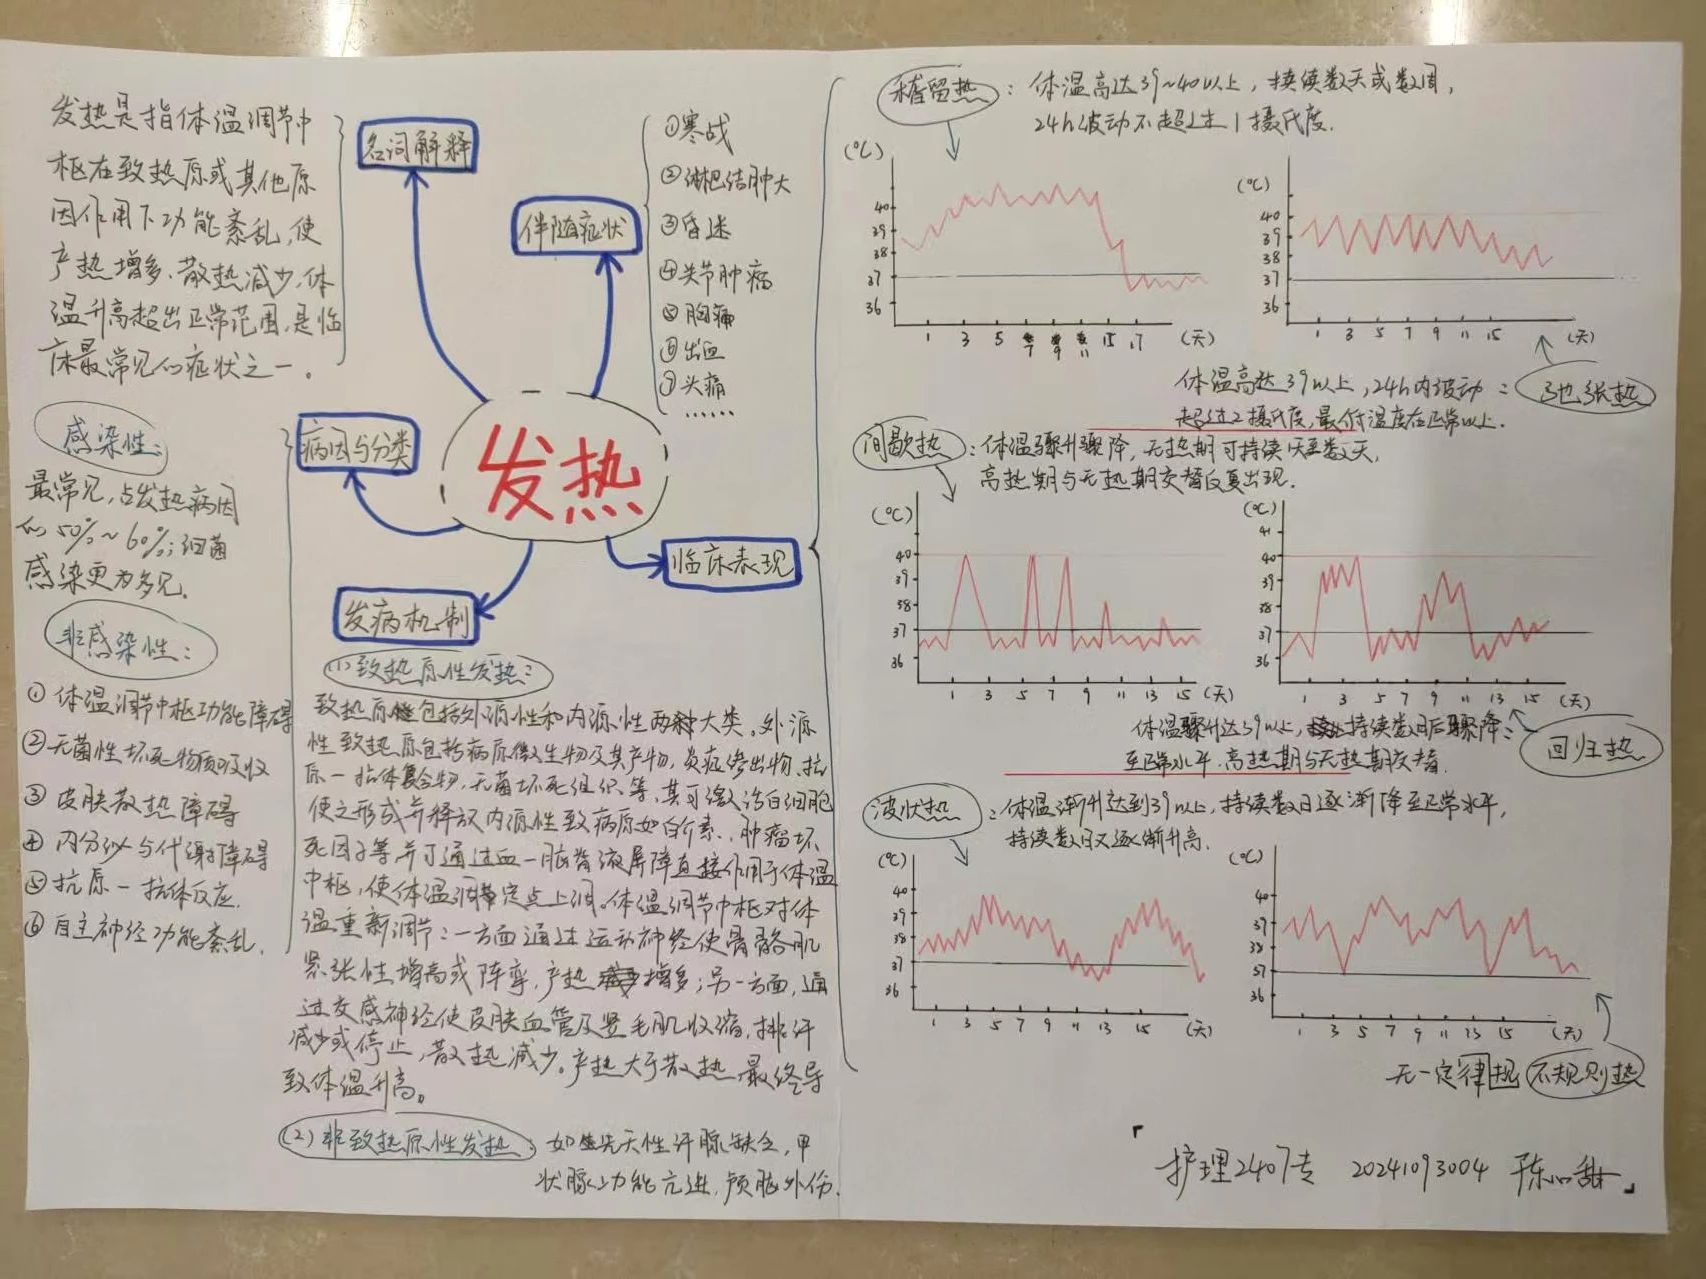 发热
名词解释
发热是指体温调节中
枢在致热原或其他原
因作用下功能紊乱，使
产热增多、散热减少，体
温升高超出正常范围，是临
床最常见的症状之一。
伴随症状
①寒战
②淋巴结肿大
③昏迷
④关节肿痛
⑤胸痛
⑥出血
⑦头痛
……
病因与分类
感染性：
最常见，占发热病因
的50%～60%；细菌
感染更为多见。
非感染性：
①体温调节中枢功能障碍
②无菌性坏死物质吸收
③皮肤散热障碍
④内分泌与代谢障碍
⑤抗原－抗体反应.
⑥自主神经功能紊乱.
发病机制
(1)致热原性发热：
致热原包括外源性和内源性两大类。外源
性致热原包括病原微生物及其产物，炎症渗出物、抗
原－抗体复合物，无菌坏死组织等、其可激活白细胞
使之形成并释放内源性致病原如白介素、肿瘤坏
死因子等并可通过血－脑脊液屏障直接作用于体温
中枢，使体温调定点上调。体温调节中枢对体
温重新调节：一方面通过运动神经使骨骼肌
紧张性增高或阵挛，产热增多；另一方面，通
过交感神经使皮肤血管及竖毛肌收缩，排汗
减少或停止，散热减少。产热大于散热最终导
致体温升高。
(2)非致热原性发热：如先天性汗腺缺乏，甲
状腺功能亢进，颅脑外伤.
临床表现
稽留热：体温高达39~40以上，持续数天或数周，
24h波动不超过1摄氏度.
(℃)
40
39
38
37
36
1 3 5 7 9 11 15 17 (天)
(℃)
40
39
38
37
36
1 3 5 7 9 11 15 (天)
体温高达39以上，24h内波动：弛张热
超过2摄氏度，最低温度在正常以上.
间歇热：体温骤升骤降，无热期可持续1天至数天，
高热期与无热期交替反复出现.
(℃)
40
39
38
37
36
1 3 5 7 9 11 13 15 (天)
(℃)
41
40
39
38
37
36
1 3 5 7 9 11 13 15 (天)
体温骤升达39以上，持续数日后骤降：回归热
至正常水平.高热期与无热期交替.
波状热：体温渐升达到39以上，持续数日逐渐降至正常水平，
持续数日又逐渐升高.
(℃)
40
39
38
37
36
1 3 5 7 9 11 13 15 (天)
(℃)
40
37
38
37
36
1 3 5 7 9 11 13 15 (天)
无一定律规 不规则热
「护理2407专 20241093004 陈心甜」